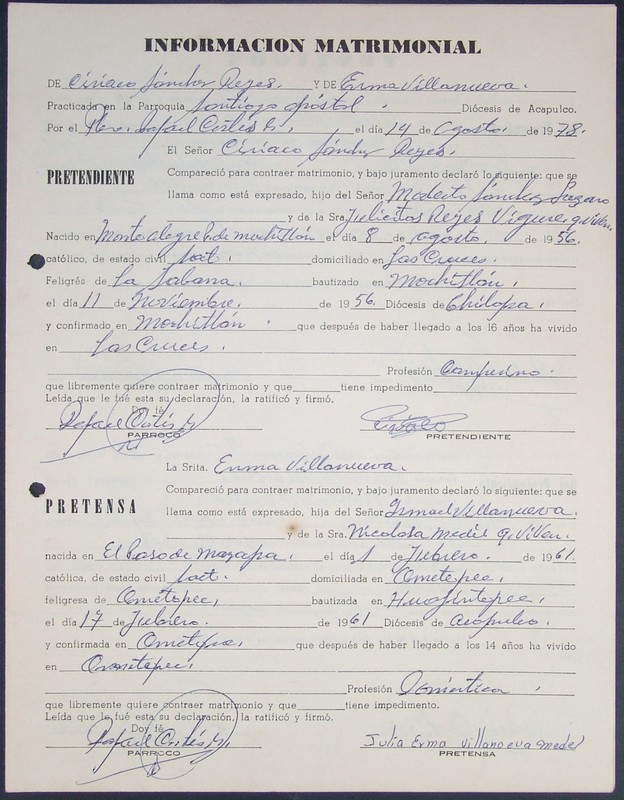 INFORMACION MATRIMONIAL
DE Ciriaco Sánchez Reyes. Y DE Erma Villanueva.
Practicada en la Parroquia Santiago Apóstol. Diócesis de Acapulco.
Por el Rev. Rafael Cortés el día 14 de agosto. de 1978.
El Señor Ciriaco Sánchez Reyes.
PRETENDIENTE
Compareció para contraer matrimonio, y bajo juramento declaró lo siguiente: que se
llama como está expresado, hijo del Señor Modesto Sánchez
y de la Sra. Reyes q. viven.
Nacido en Monte alegre de mochitlán el día 8 de agosto. de 1956.
católico, de estado civil domiciliado en Las Cruces.
Feligrés de La Sabana. bautizado en Mochitlán,
el día 11 de Noviembre. de 1956 Diócesis de Chilapa,
y confirmado en Mochitlán. que después de haber llegado a los 16 años ha vivido
en Las Cruces.
Profesión Campesino.
que libremente quiere contraer matrimonio y que tiene impedimento
Leída que le fué esta su declaración, la ratificó y firmó.
Doy fé
Rafael Cortés
PARROCO
PRETENDIENTE
La Srita. Erma Villanueva.
PRETENSA
Compareció para contraer matrimonio, y bajo juramento declaró lo siguiente: que se
llama como está expresado, hija del Señor Ismael Villanueva.
y de la Sra. Nicolasa q. viven.
nacida en El Paso de el día 1 de Febrero. de 1961.
católica, de estado civil domiciliada en Ometepec,
feligresa de Ometepec, bautizada en Huajintepec,
el día 17 de Febrero. de 1961 Diócesis de Acapulco.
y confirmada en Ometepec, que después de haber llegado a los 14 años ha vivido
en Ometepec,
Profesión Doméstica.
que libremente quiere contraer matrimonio y que tiene impedimento.
Leída que le fué esta su declaración, la ratificó y firmó.
Doy fé
Rafael Cortés
PARROCO
Julia Erma Villanueva medel
PRETENSA